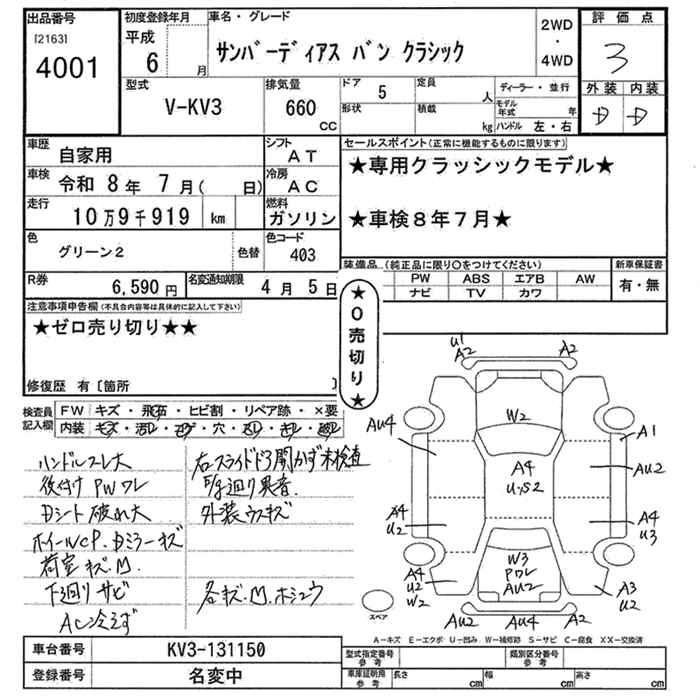 出品番号 初度登録年月 車名・グレード 2WD・4WD 評価点
[2163] 平成
4001 6 月 サンバーディアス バン クラシック 3
型式 排気量 ドア 5 定員 人 ディーラー・並行 外装 内装
V-KV3 660 CC 形状 積載 kg モデル年式 年 D D
ハンドル 左・右
車歴 自家用 シフト AT セールスポイント(正常に機能するものに限ります)
車検 令和 8年 7月( 日) 冷房 AC ★専用クラッシックモデル★
走行 10万9千919 km 燃料 ガソリン ★車検8年7月★
色 グリーン2 色替 色コード 403
装備品(純正品に限り○をつけてください) 新車保証書
R券 6,590円 名変通知期限 4月5日 PW ABS エアB AW 有・無
ナビ TV カワ
注意事項申告欄(不具合内容等は具体的に記入して下さい)
★ゼロ売り切り★★
★0売切り★
修復歴 有〔箇所 〕
検査員記入欄 FW キズ・飛石・ヒビ割・リペア跡・×要
内装 キズ・汚レ・コゲ・穴・スレ・キレ・
ハンドルスレ大
後付 PWワレ
Dシート破れ大
ホイールCP.Dミラーキズ
荷室キズ.M.
下廻りサビ
AC冷えず
右スライドドア開かず未検査
下廻り異音
外装ウスキズ
各キズ.M.ホシュウ
U1 A2 A2
W2
AU4 A1
A4 U,S2 AU2
A4 U2 A4 U3
W3 Pワレ AU2
A4 U2 W2 A3 U2
AU2 AU4 A2
スペア
A−キズ E−エクボ U−凹み W−補修跡 S−サビ C−腐食 XX−交換済
車台番号 KV3-131150 型式指定番号 参考 類別区分番号 参考
登録番号 名変中 車庫証明用 参考 長さ cm 幅 cm 高さ cm